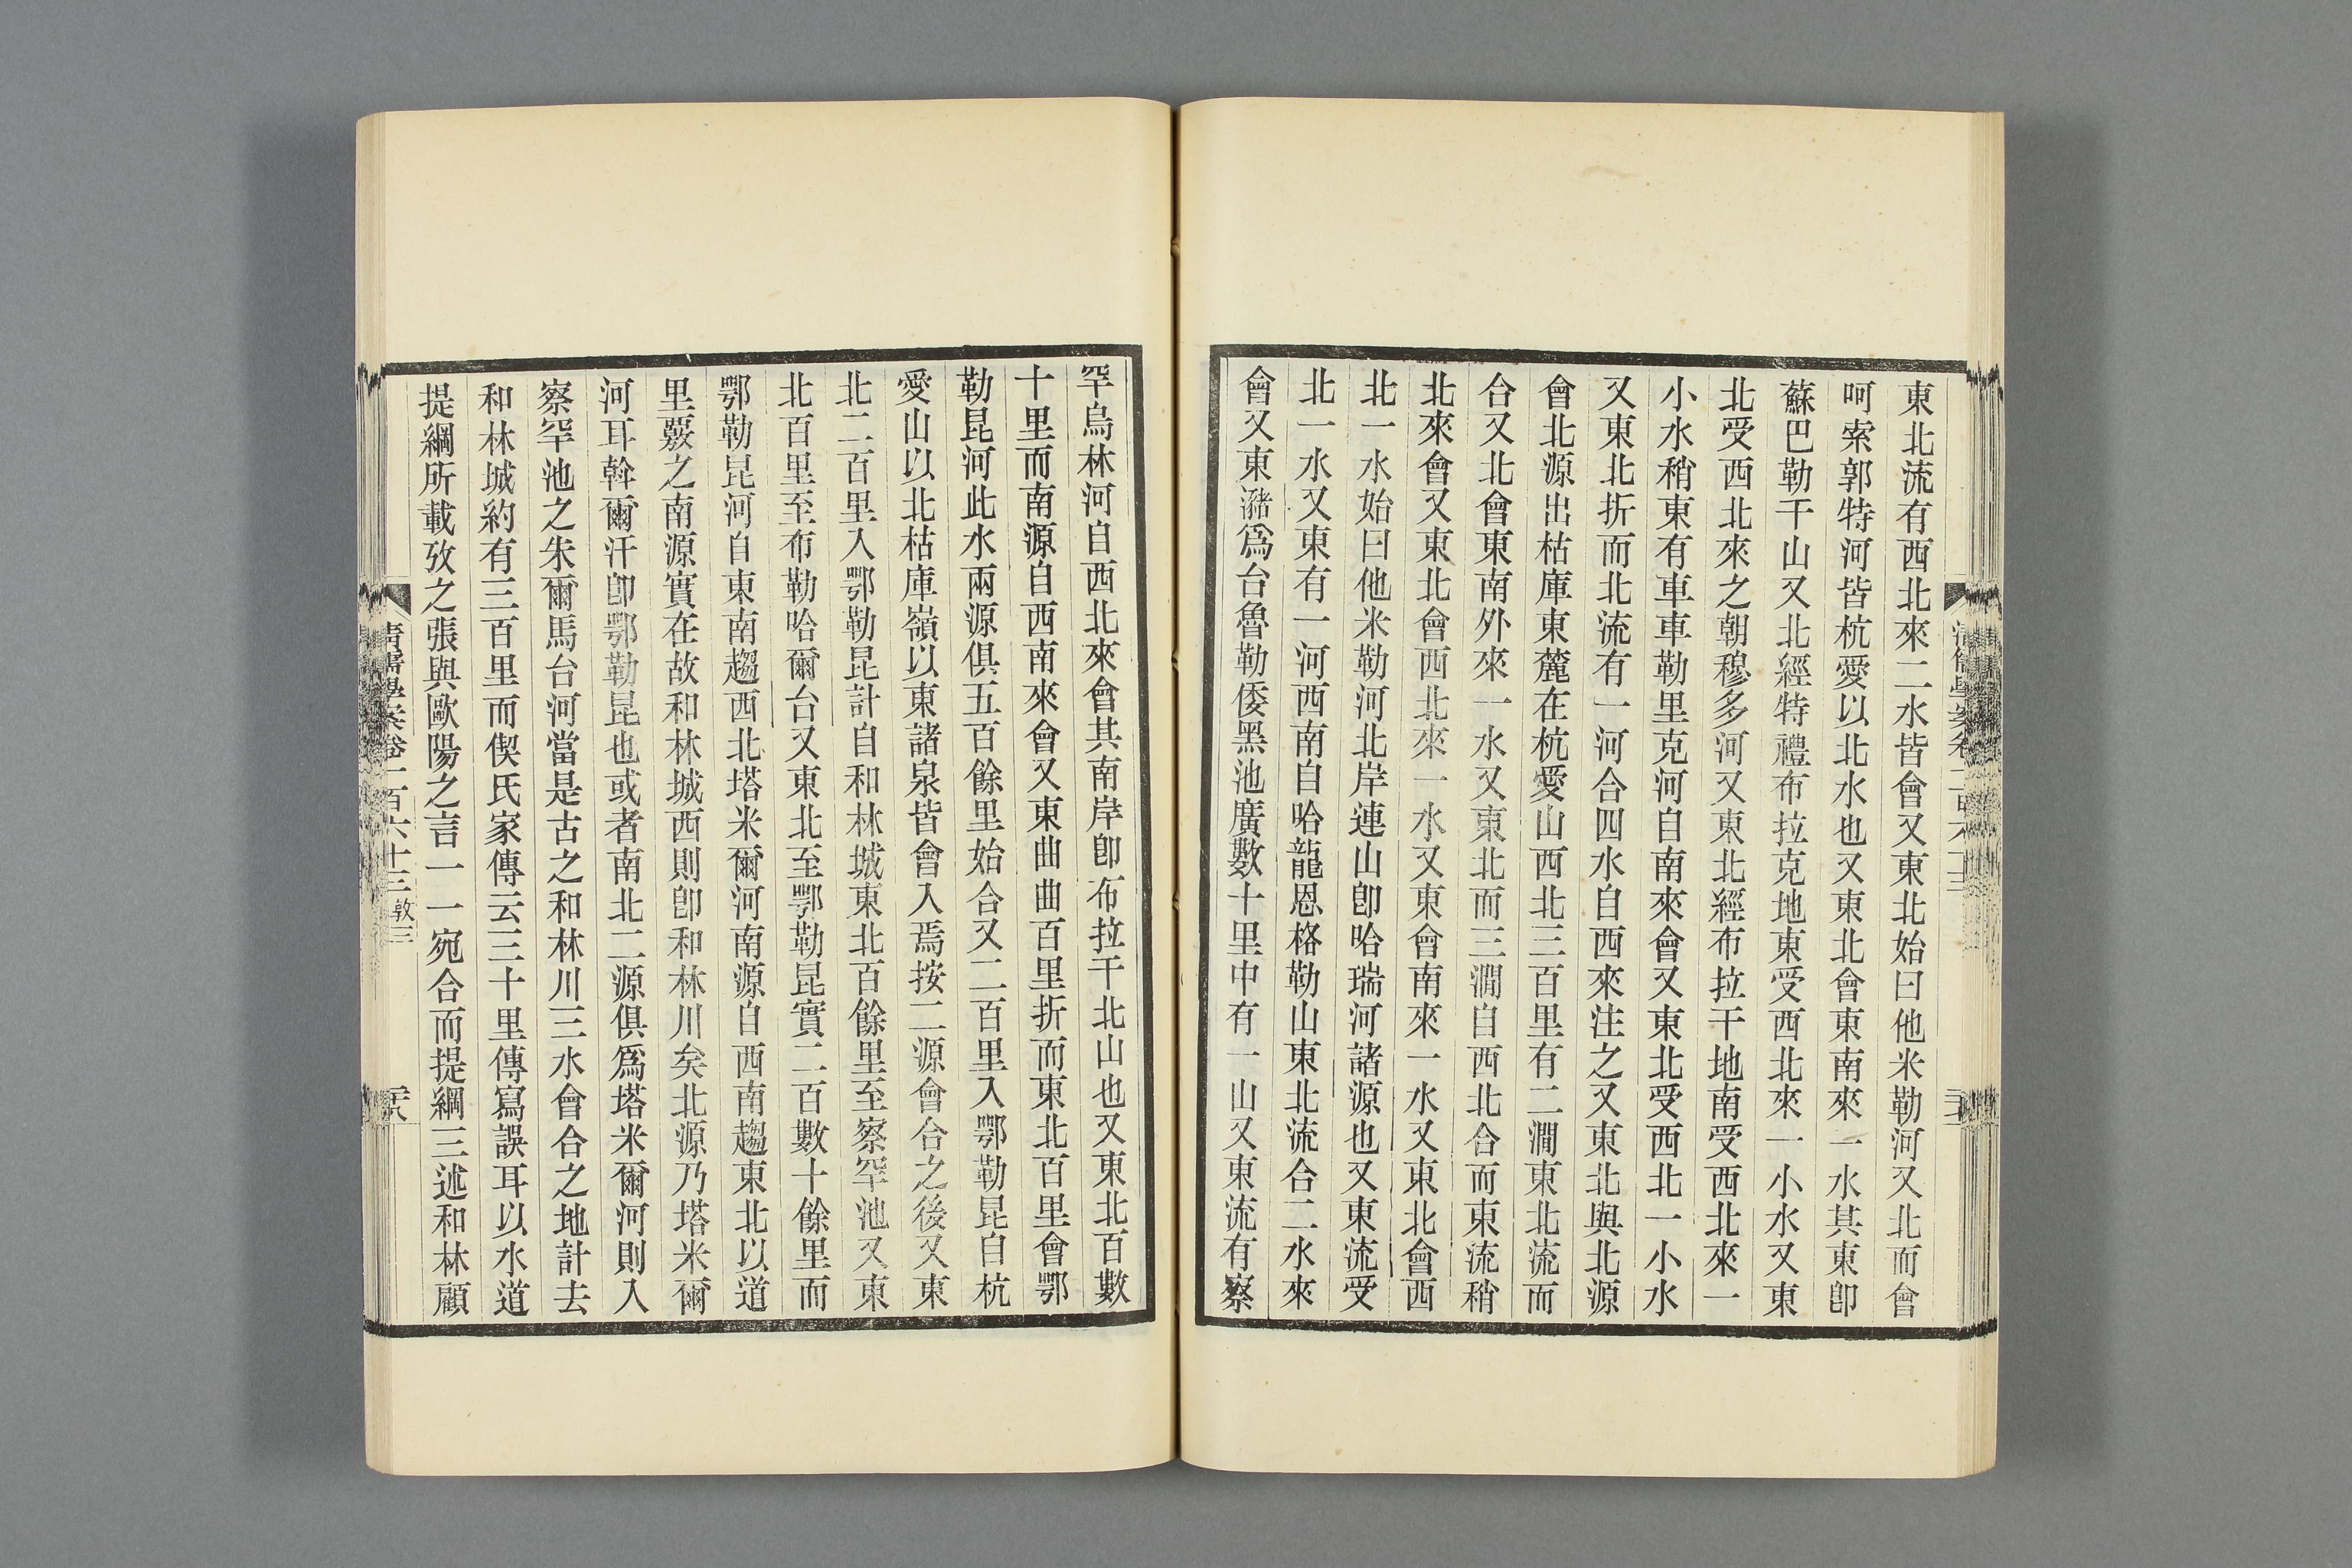 東北流有西北來二水皆會又東北始曰他米勒河又北而會
呵索郭特河皆杭愛以北水也又東北會東南來一水其東卽
蘇巴勒干山又北經特禮布拉克地東受西北來一小水又東
北受西北來之朝穆多河又東北經布拉干地南受西北來一
小水稍東有車車勒里克河自南來會又東北受西北一小水
又東北折而北流有一河合四水自西來注之又東北與北源
會北源出枯庫東麓在杭愛山西北三百里有二澗東北流而
合又北會東南外來一水又東北而三澗自西北合而東流稍
北來會又東北會西北來一水又東會南來一水又東北會西
北一水始曰他米勒河北岸連山卽哈瑞河諸源也又東流受
北一水又東有一河西南自哈龍恩格勒山東北流合二水來
會又東瀦爲台魯勒倭黑池廣數十里中有一山又東流有察
罕烏林河自西北來會其南岸卽布拉干北山也又東北百數
十里而南源自西南來會又東曲曲百里折而東北百里會鄂
勒昆河此水兩源俱五百餘里始合又二百里入鄂勒昆自杭
愛山以北枯庫嶺以東諸泉皆會入焉按二源會合之後又東
北二百里入鄂勒昆計自和林城東北百餘里至察罕池又東
北百里至布勒哈爾台又東北至鄂勒昆實二百數十餘里而
鄂勒昆河自東南趨西北塔米爾河南源自西南趨東北以道
里覈之南源實在故和林城西則卽和林川矣北源乃塔米爾
河耳斡爾汗卽鄂勒昆也或者南北二源俱爲塔米爾河則入
察罕池之朱爾馬台河當是古之和林川三水會合之地計去
和林城約有三百里而偰氏家傳云三十里傳寫誤耳以水道
提綱所載攷之張與歐陽之言一一宛合而提綱三述和林顧
清儒學案卷一百六十三 敦三
二十八